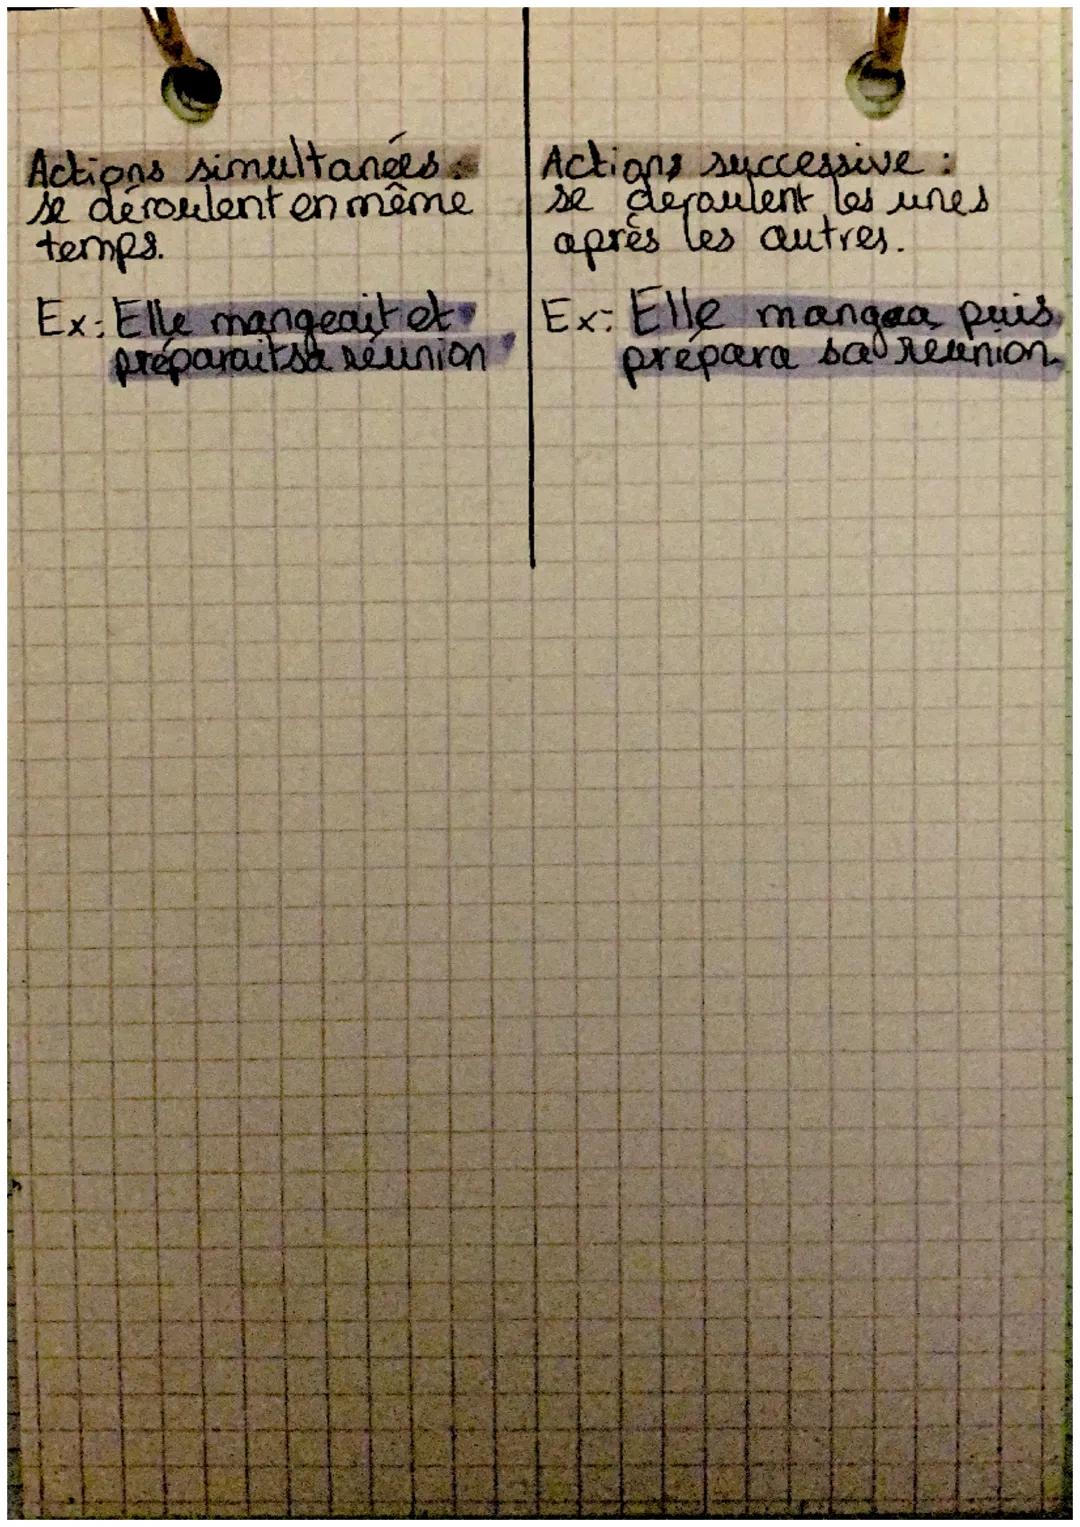 Actions simultanées :
se déroulent en même
temps.
Ex: Elle mangeait et
préparait sa réunion
Actions successive :
se déroulent les unes
après les autres.
Ex: Elle mangea puis
prépara sa réunion.